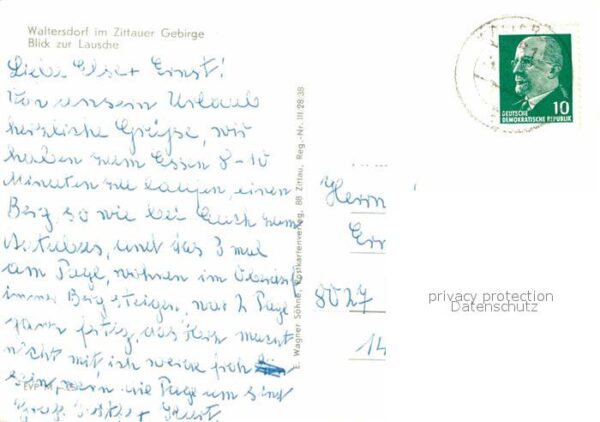 Waltersdorf im Zittauer Gebirge
Blick zur Lausche
Liebe Else + Ernst!
Von unsern Urlaub
herzliche Grüße, wir
haben zum Essen 8-10
Minuten zu laufen, einen
Berg so wie bei Euch zum
und das 3 mal
am Tage, wohnen im
immer Berg steigen, war 2 Tage
ganz fertig, das Herz macht
nicht mit ich werde froh
sein, wenn die Tage um sind
Gruß
EVP M -,25
E. Wagner Söhne, Postkartenverlag, 88 Zittau, Reg.-Nr. III-28-38
10
DEUTSCHE
DEMOKRATISCHE REPUBLIK
Herrn
8027
14
privacy protection
Datenschutz